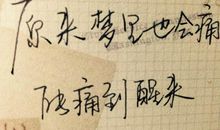 原来梦里也会痛
能痛到醒来